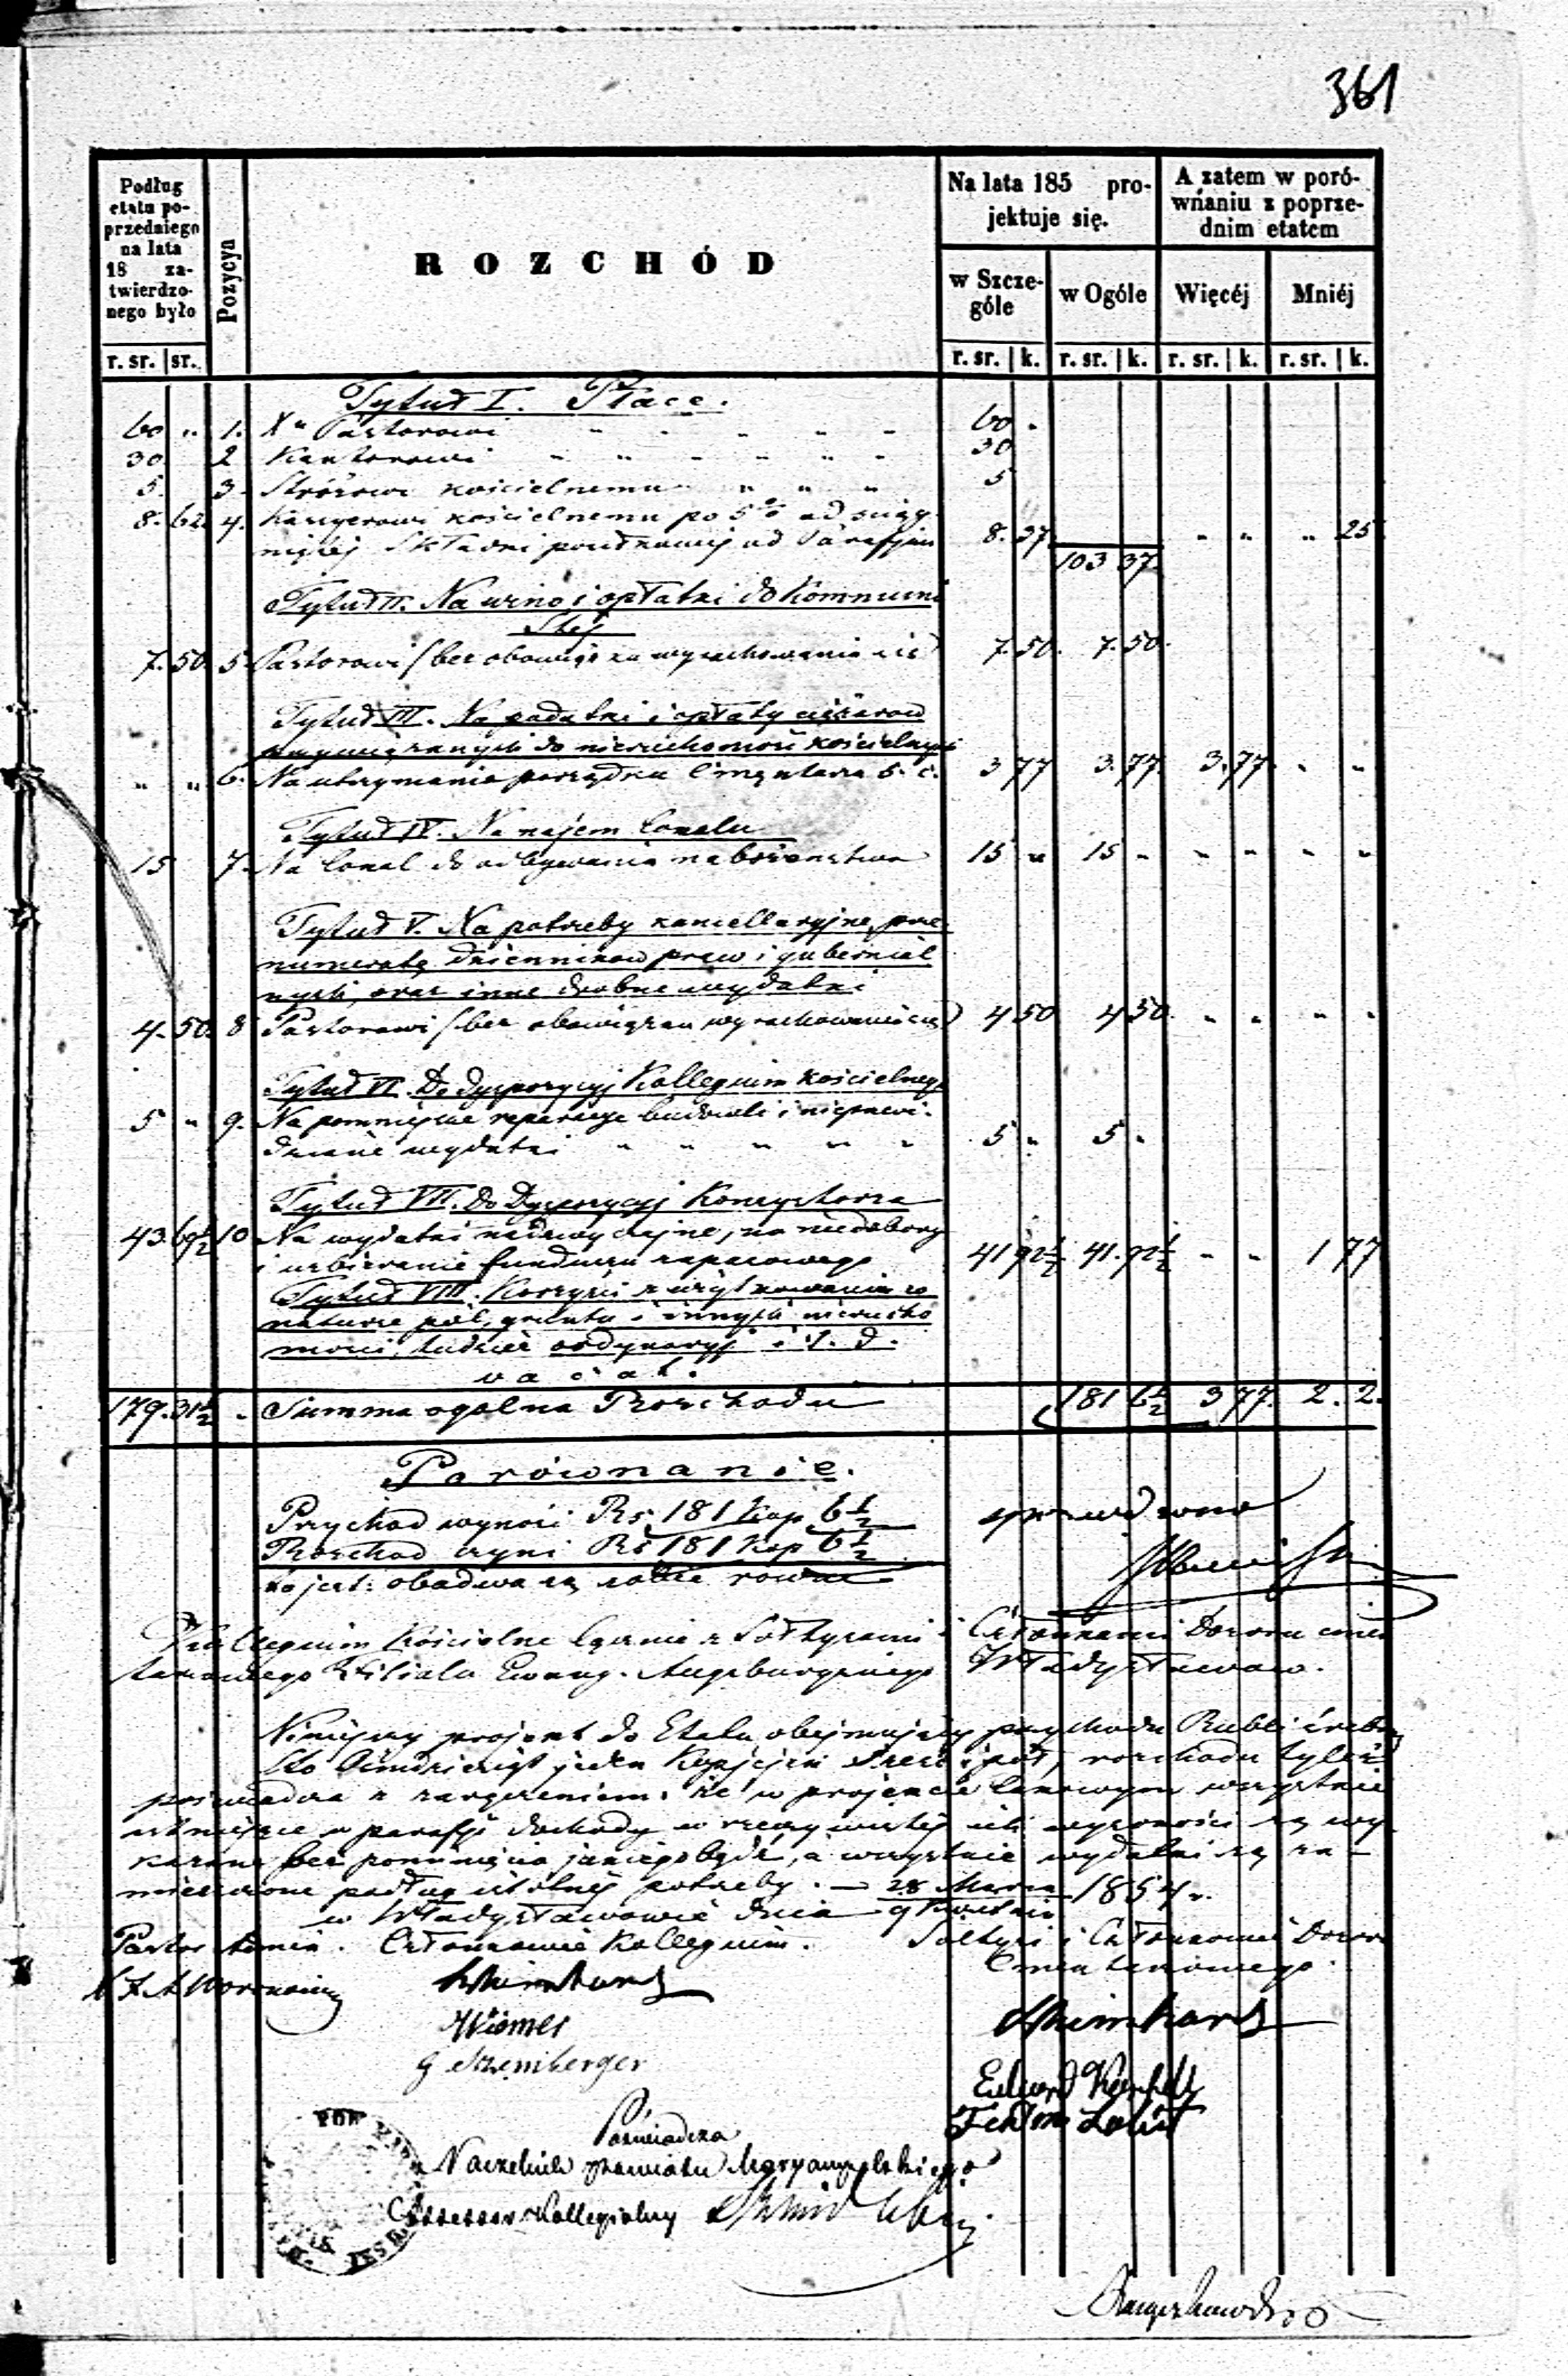 361
Podług etatu poprzedniego na lata 18 zatwierdzonego było
Pozycya
ROZCHÓD
Na lata 185 projektuje się.
A zatem w porównaniu z poprzednim etatem
w Szczególe
w Ogóle
Więcéj
Mniéj
r. sr. | sr.
r. sr. | k. r. sr. | k. r. sr. | k. r. sr. | k.
Tytuł I. Płace.
60 " 1. Xu Pastorowi 60 "
30 2 Kantorowi 30
5 3 Stróżowi kościelnemu 5
8. 62 4. Kassyerowi kościelnemu po 5% od ściąg
niętéj składki pod 8. 37 " " " 25
103 37
Tytuł II. Na wino i opłatki do Kommuni
Stéj
7. 50 5 Pastorowi (bez obowiązku wyrachowania się) 7. 50. 7. 50.
Tytuł III. Na podatki i opłaty ciężarów
przywiązanych do nieruchomości kościelnych
" " 6. Na utrzymanie porządku Cmentarza 3 77 3. 77. 3. 77 " "
Tytuł IV. Na najem Lokalu
15 7. Na Lokal do odbywania nabożeństwa 15 " 15 " " " " "
Tytuł V. Na potrzeby kancellaryjne, pre
numeratę dzienników praw i gubernial
nych, oraz inne drobne wydatki
4. 50 8 Pastorowi (bez obowiązku wyrachowania się) 4 50 4 50. " " " "
Tytuł VI. Do dyspozycyj Kollegium kościelnego
5 " 9. Na pomniejsze reperacye budowli i nieprzewi-
dziane wydatki 5 " 5 "
Tytuł VII. Do Dyspozycyj Konsystorza
43. 69½ 10 Na wydatki nadzwyczajne, na niedobory
i uzbieranie funduszu zapasowego 41 92½ 41. 92½ " " 1 77
Tytuł VIII. Korzyści z użytkowania w
naturze pól, gruntu i innych nierucho
mości, tudzież ordynaryj i t. d.
vacat.
179. 31½ " Summa ogólna Rozchodu 181 6½ 3 77. 2. 2.
Porównanie.
Przychód wynosi Rs. 181 kop 6½
Rozchód czyni Rs 181 kop 6½
to jest: obadwa są sobie równe
sprawdzono
Kollegium Kościelne łącznie z Sołtysami i Członkami Dozoru cmen
tarnego Filiału Ewang. Augsburgskiego Władysławów.
Niniejszy projekt do Etatu obejmujący przychodu Rubli srebr
Sto Ośmdziesiąt jeden Kopiejek sześć i pół, rozchodu tyleż
poświadcza z zaręczeniem, że w projekcie takowym wszystkie
istniejące w parafji dochody w rzeczywistéj ich wysokości są wy
kazane bez pominięcia jakiegobądź, a wszystkie wydatki są za-
mieszczone podług istotnéj potrzeby. — 28 Marca 1854 r.
w Władysławowie dnia 9 Kwietnia
Pastor Członkowie Kollegium. Sołtysi i Członkowie Dozoru
Cmentarnego.
Poświadcza
Naczelnik Powiatu Maryampolskiego
Assessor Kollegialny